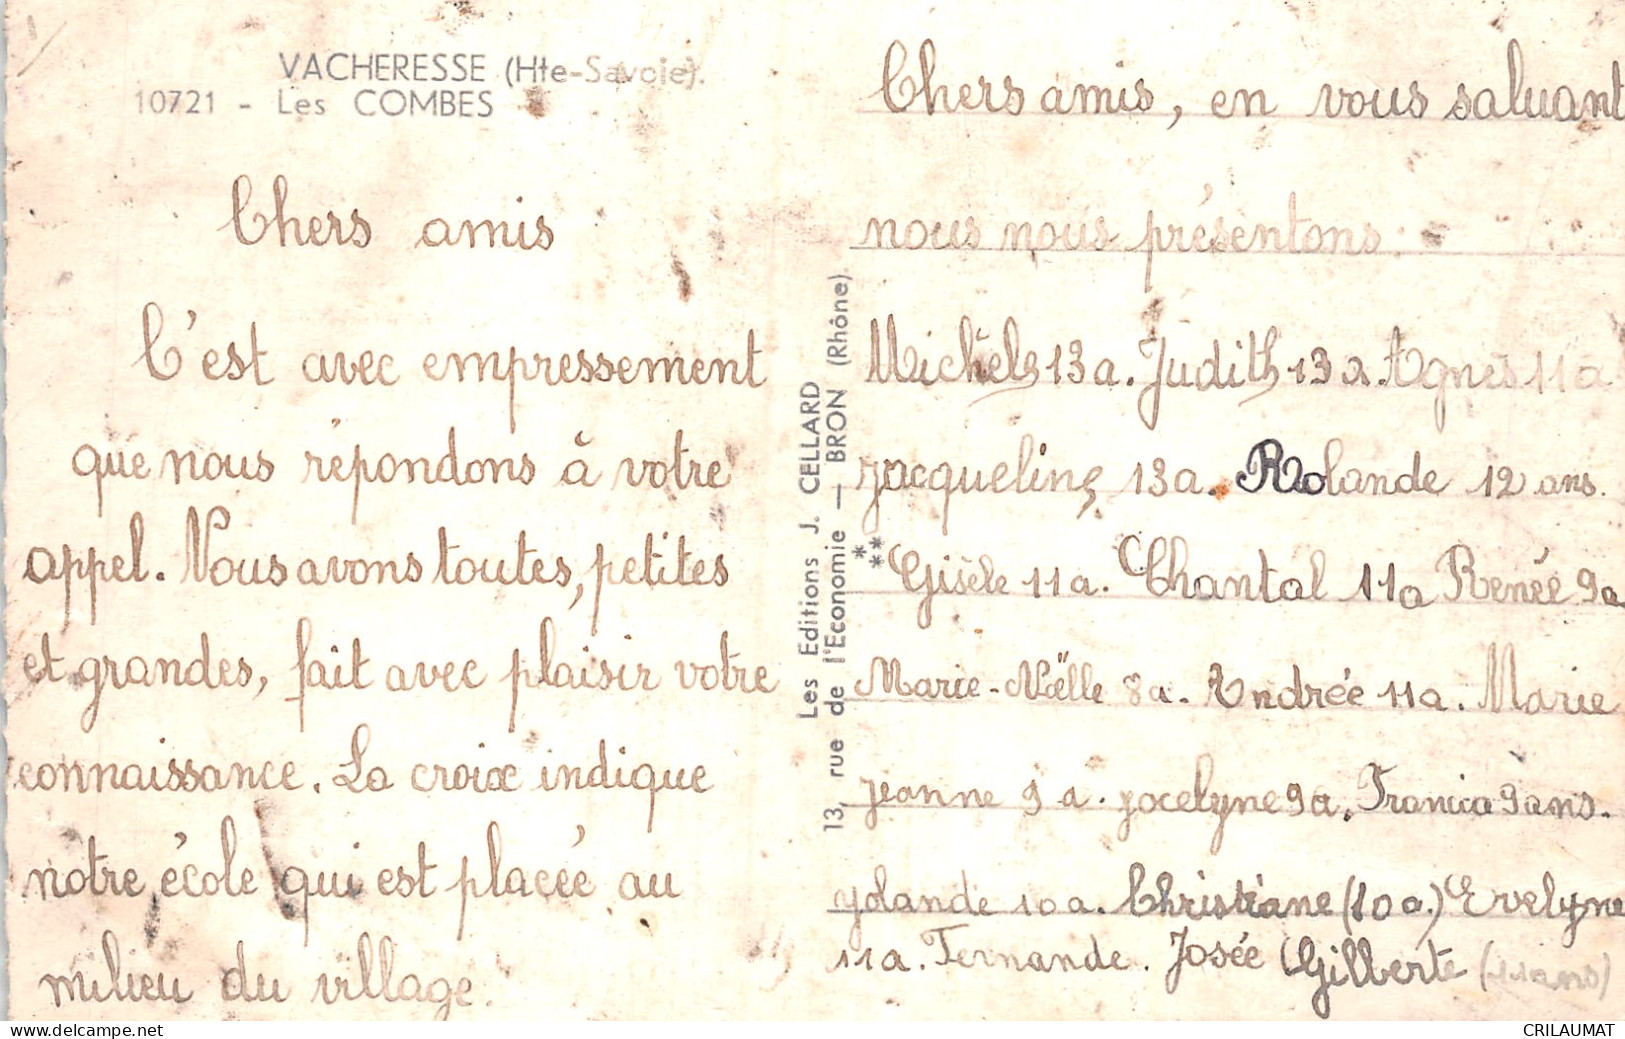 VACHERESSE (Hte-Savoie).
10721 - Les COMBES
Chers amis
C'est avec empressement
que nous répondons à votre
appel. Nous avons toutes, petites
et grandes, fait avec plaisir votre
connaissance. La croix indique
notre école qui est placée au
milieu du village.
Les Editions J. CELLARD
13, rue de l'Economie — BRON (Rhône)
***
Chers amis, en vous saluant
nous nous présentons.
Michèle 13a. Judith 13a. Agnès 11a
Jacqueline 13a. Rolande 12 ans.
Gisèle 11a. Chantal 11a Renée 9a
Marie-Noëlle 8a. Andrée 11a. Marie
Jeanne 9a. Jocelyne 9a. Francia 9ans.
Yolande 10a. Christiane (10a.) Evelyne
11a. Fernande. Josée Gilberte (11ans)
CRILAUMAT
delcampe.net